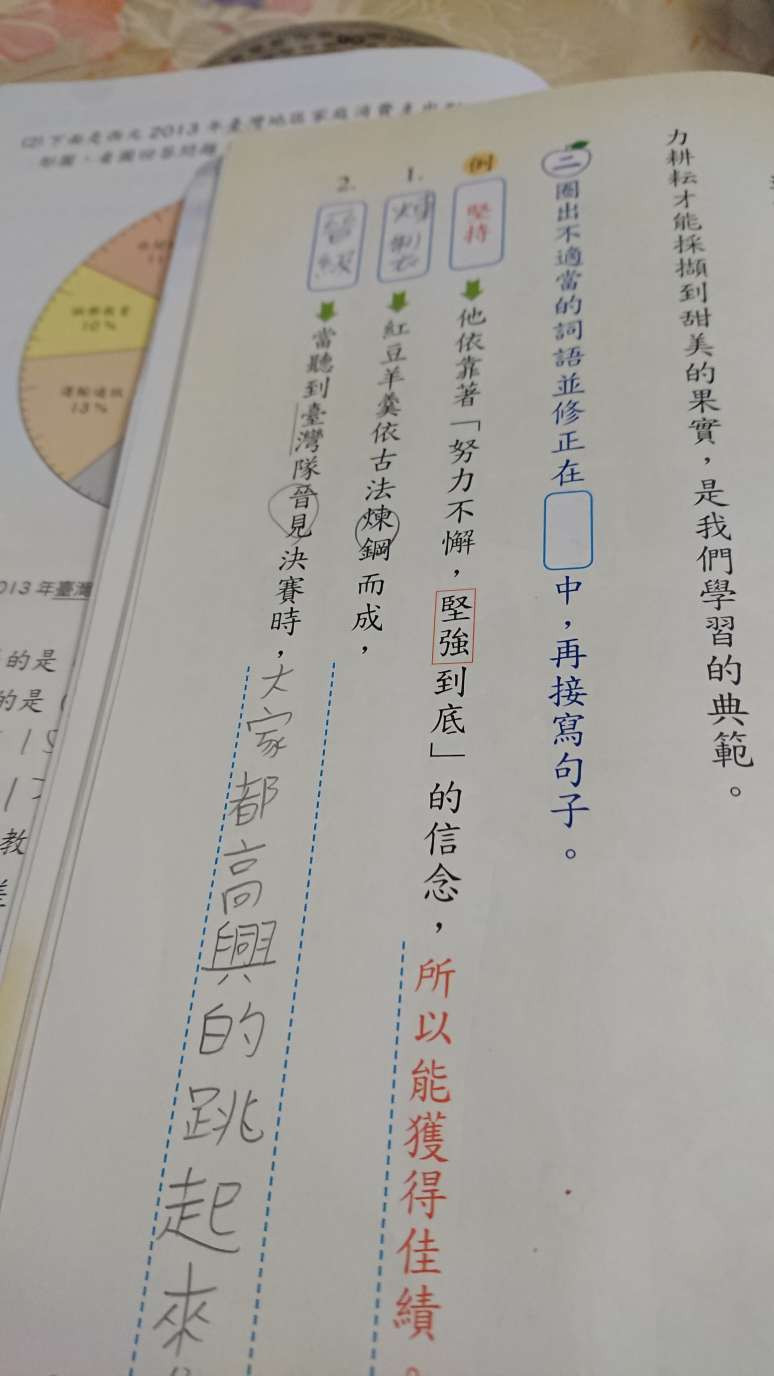 力耕耘才能採擷到甜美的果實，是我們學習的典範。
二 圈出不適當的詞語並修正在 中，再接寫句子。
例 堅持 他依靠著「努力不懈，堅強到底」的信念，所以能獲得佳績。
1. 煉製 紅豆羊羹依古法煉鋼而成，
2. 晉級 當聽到臺灣隊晉見決賽時，大家都高興的跳起來
(2) 下面是西元 2013 年臺灣地區家庭消費支出
形圖，看圖回答問題
10%
運輸通訊
13%
013 年臺灣
的是
的是
教